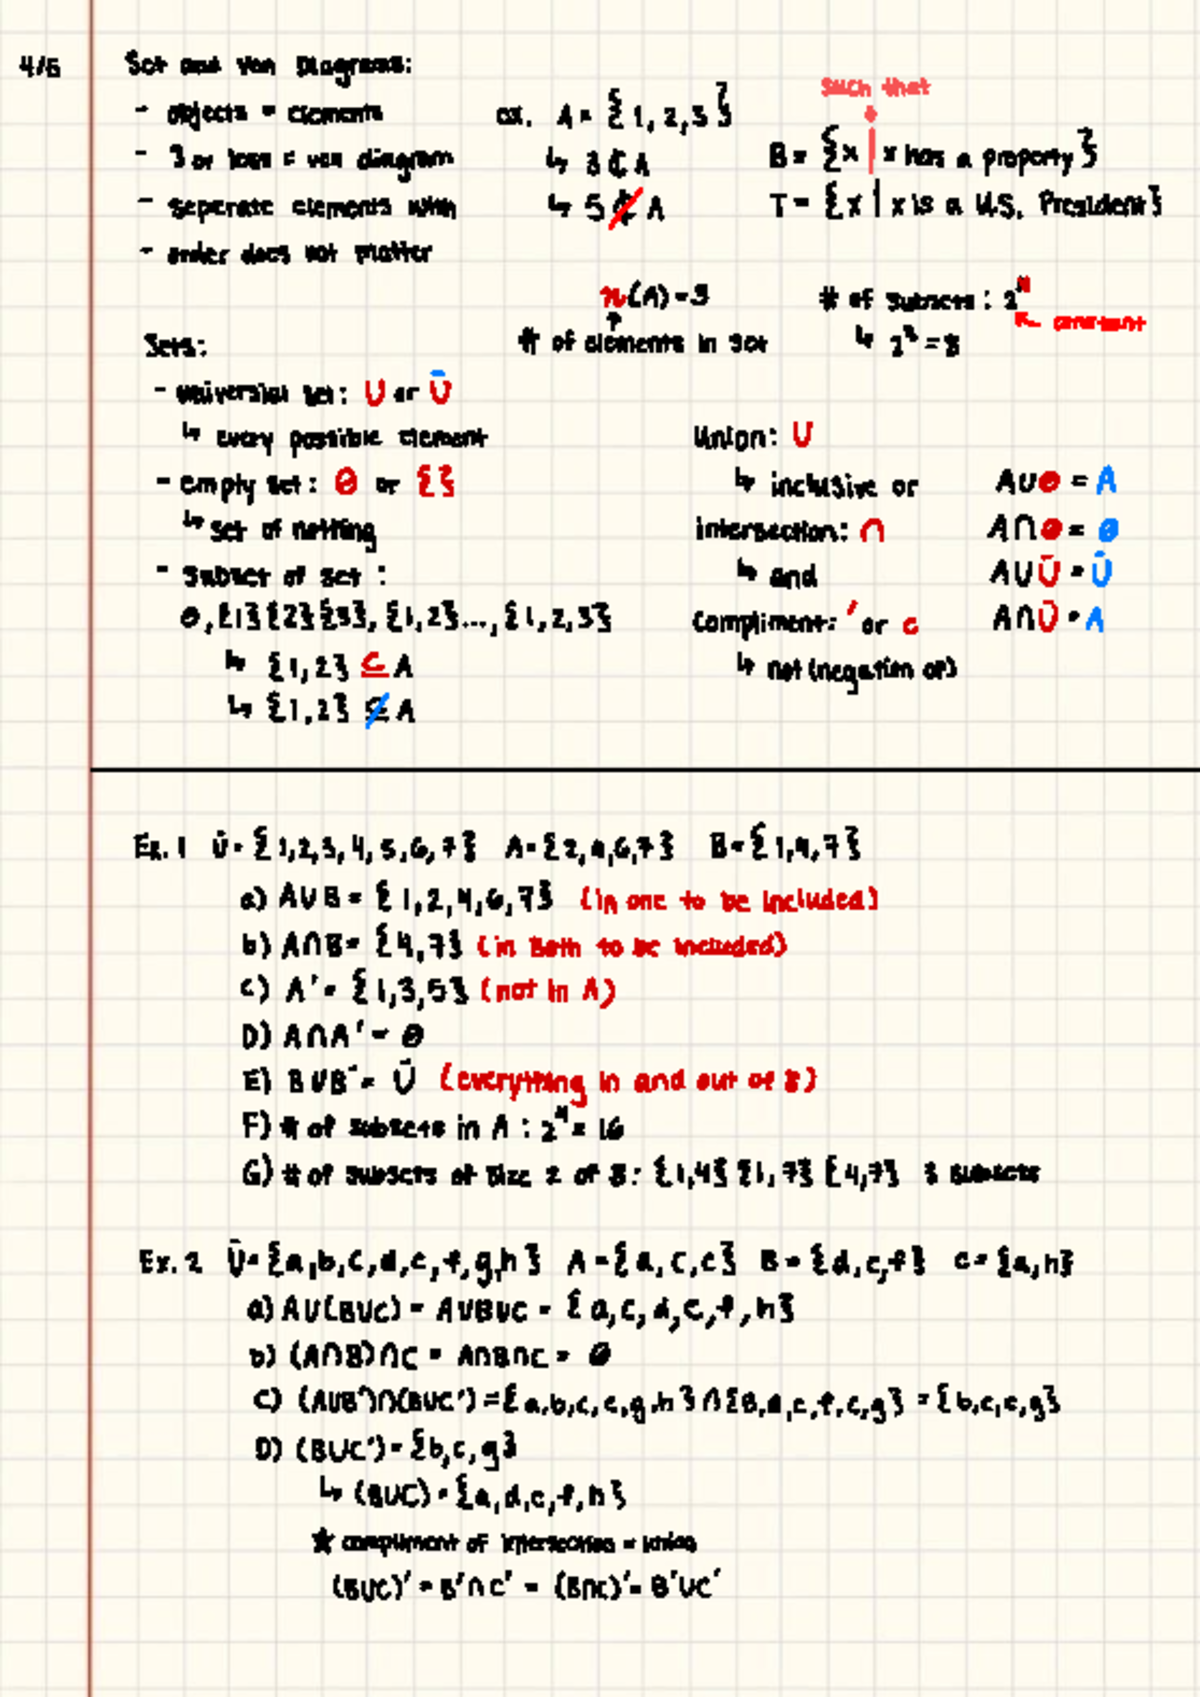 4/6
Set and Ven Diagrams:
- objects = elements
- 3 or less = ven diagram
- seperate elements with
- order does not matter
ex. A = {1, 2, 3}
↳ 3 ∈ A
↳ 5 ∉ A
such that
B = {x | x has a property}
T = {x | x is a U.S. President}
n(A) = 3
↑
# of elements in set
# of subsets: 2ⁿ
↳ 2³ = 8
Sets:
- universial set: U or Ū
↳ every possible element
- empty set: ∅ or { }
↳ set of nothing
- Subset of set:
∅, {1} {2} {3}, {1,2}..., {1,2,3}
↳ {1,2} ⊆ A
↳ {1,2} ⊈ A
Union: U
↳ inclusive or
intersection: ∩
↳ and
Compliment: ′ or c
↳ not (negation of)
A∪∅ = A
A∩∅ = ∅
A∪Ū = Ū
A∩Ū = A
Ex. 1 Ū = {1,2,3,4,5,6,7} A = {2,4,6,7} B = {1,4,7}
a) A∪B = {1,2,4,6,7} (in one to be included)
b) A∩B = {4,7} (in both to be included)
c) A′ = {1,3,5} (not in A)
D) A∩A′ = ∅
E) B∪B′ = Ū (everything in and out of B)
F) # of subsets in A: 2⁴ = 16
G) # of subsets of size 2 of B: {1,4} {1,7} {4,7} 3 subsets
Ex. 2 Ū = {a,b,c,d,e,f,g,h} A = {a,c,e} B = {d,e,f} C = {a,h}
a) A∪(B∪C) = A∪B∪C = {a,c,d,e,f,h}
b) (A∩B)∩C = A∩B∩C = ∅
c) (A∪B′)∩(B∪C′) = {a,b,c,e,g,h} ∩ {B,d,e,f,c,g} = {b,c,e,g}
D) (B∪C′) = {b,c,g}
↳ (B∪C) = {a,d,e,f,h}
★ compliment of intersection = union
(B∪C)′ = B′∩C′ = (B∩C)′ = B′∪C′